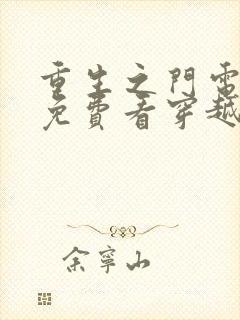 重生之門電
免費看穿越
余寧山